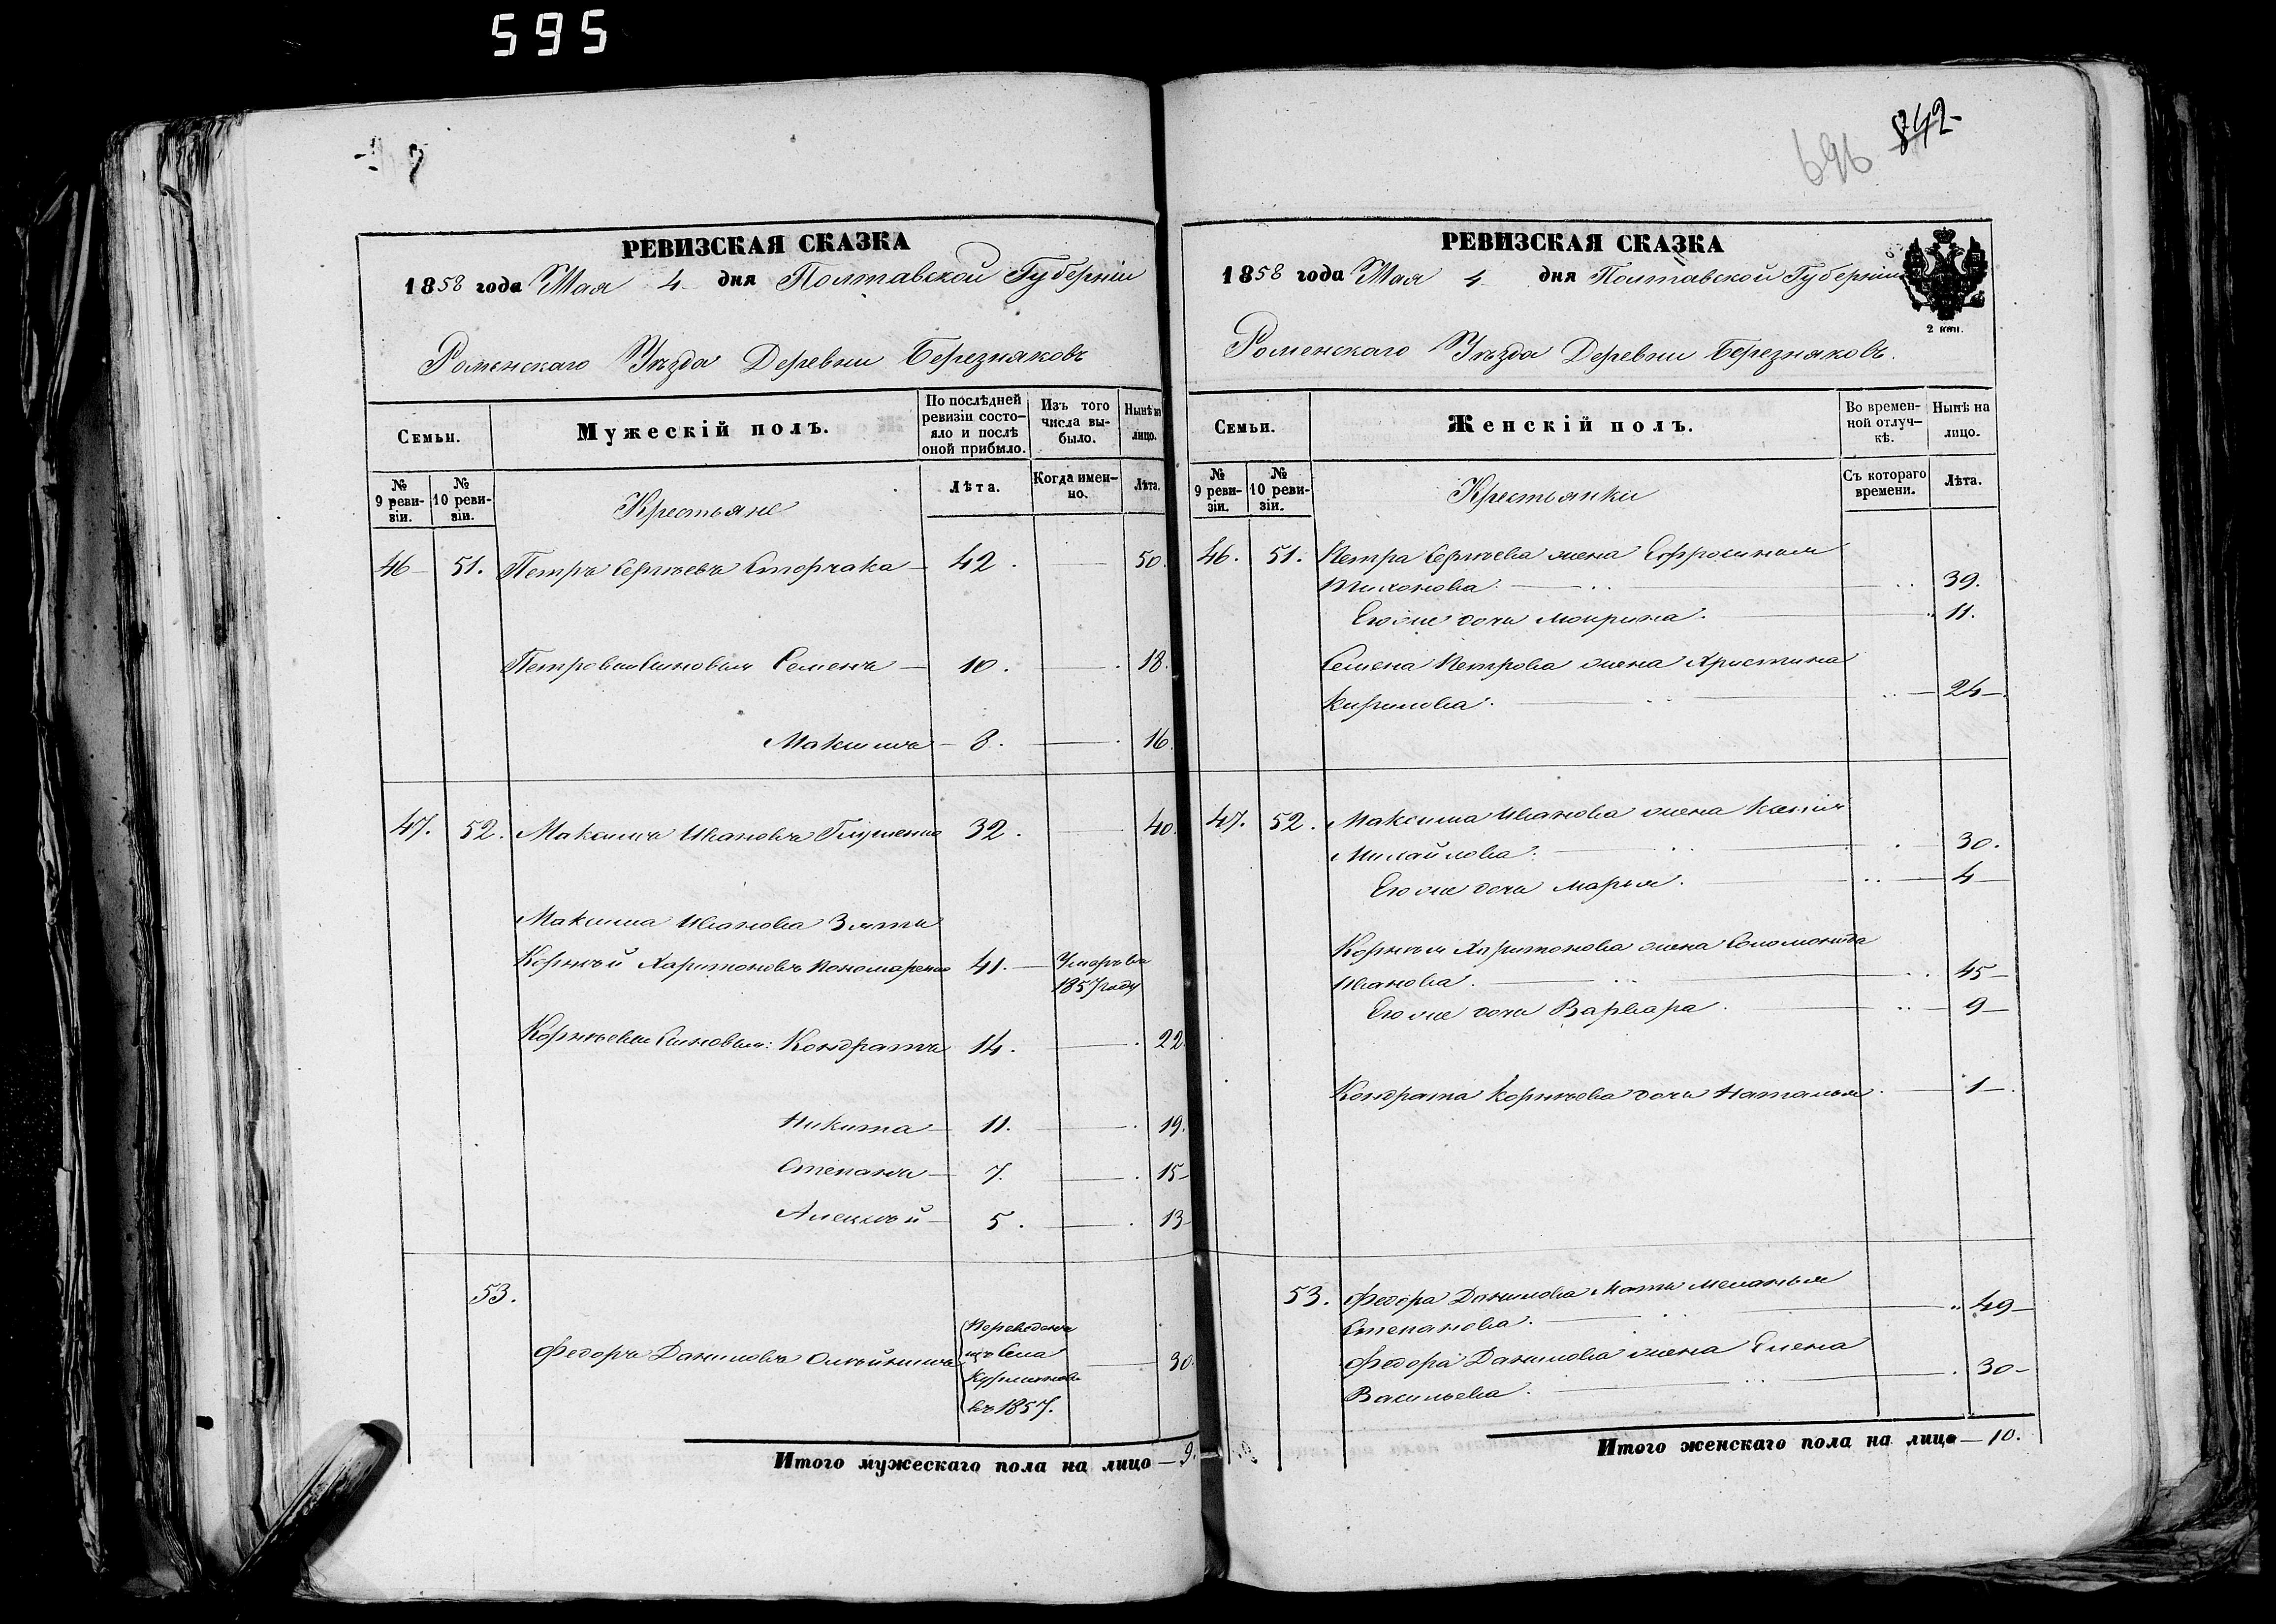 595
696 842
РЕВИЗСКАЯ СКАЗКА
1858 года Мая 4 дня Полтавской Губерніи
Роменскаго Уѣзда Деревни Березняковъ
Семьи.
Мужескій полъ.
По послѣдней ревизіи состояло и послѣ оной прибыло.
Изъ того числа выбыло.
Нынѣ на лицо.
№ 9 ревизіи.
№ 10 ревизіи.
Крестьяне
Лѣта.
Когда именно.
Лѣта.
46 51. Петръ Сергѣевъ Сторчака 42. 50.
Петровы Сыновья Семенъ 10. 18.
Максимъ 8. 16.
47. 52. Максимъ Ивановъ 32. 40.
Максима Иванова Зять
Корнѣй Харитоновъ Пономаренко 41. Умеръ въ
1857 году
Корнѣевы Сыновья: Кондратъ 14. 22.
Никита 11. 19.
Степанъ 7. 15
Алексѣй 5. 13
53.
Переведенъ
изъ Села
въ 1857.
Федоръ Даниловъ Олѣйникъ 30.
Итого мужескаго пола на лицо 9.
РЕВИЗСКАЯ СКАЗКА
1858 года Мая 4 дня Полтавской Губерніи
2 коп.
Роменскаго Уѣзда Деревни Березняковъ.
Семьи.
Женскій полъ.
Во временной отлучкѣ.
Нынѣ на лицо.
№ 9 ревизіи.
№ 10 ревизіи.
Крестьянки
Съ котораго времени.
Лѣта.
46. 51. Петра Сергѣева жена Ефросинья
Тихонова. 39.
Его же дочь Мокрина. 11.
Семена Петрова жена Христина
Кирилова. 24
47. 52. Максима Иванова жена
Михайлова. 30.
Его же дочь Марья. 4
Корнѣя Харитонова жена Соломонида
Иванова. 45
Его же дочь Варвара. 9
Кондрата Корнѣева дочь Наталья. 1
53. Федора Данилова Мать Меланья
Степанова. 49
Федора Данилова жена Елена
Васильева. 30
Итого женскаго пола на лицо 10.